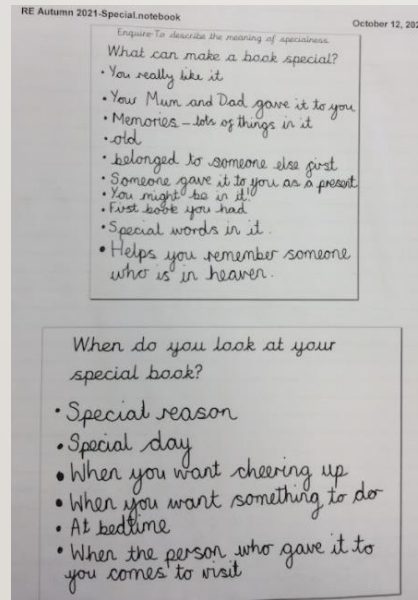 RE Autumn 2021-Special.notebook
October 12, 202
Enquire-To describe the meaning of specialness
What can make a book special?
• You really like it
• Your Mum and Dad gave it to you
• Memories – lots of things in it
• old
• belonged to someone else first
• Someone gave it to you as a present
• You might be in it!
• First book you had
• Special words in it.
• Helps you remember someone
who is in heaven.
When do you look at your
special book?
• Special reason
• Special day
• When you want cheering up
• When you want something to do
• At bedtime
• When the person who gave it to
you comes to visit